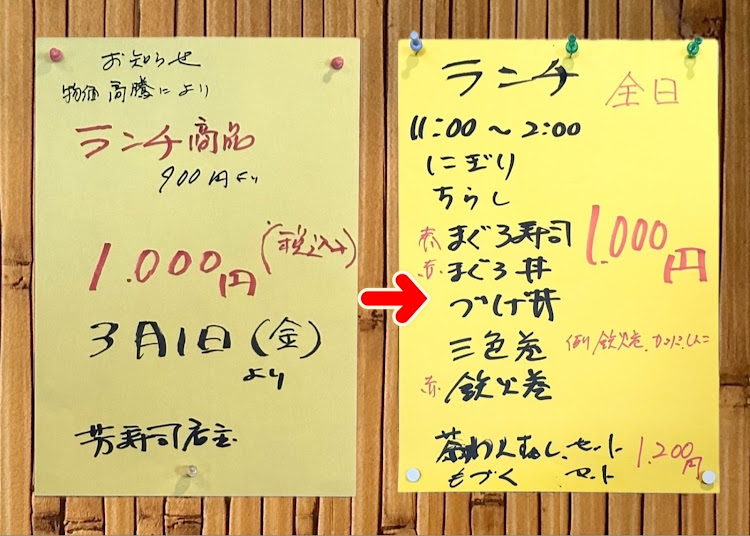 お知らせ
物価高騰により
ランチ商品
900円より
1.000円(税込み)
3月1日(金)
より
芳寿司店主
ランチ 全日
11:00～2:00
にぎり
ちらし
赤 まぐろ寿司
赤 まぐろ丼
づけ丼
1.000円
三色巻 例 鉄火巻.カッパ.しんこ
赤 鉄火巻
茶わんむし.セット
もづく セット
1.200円